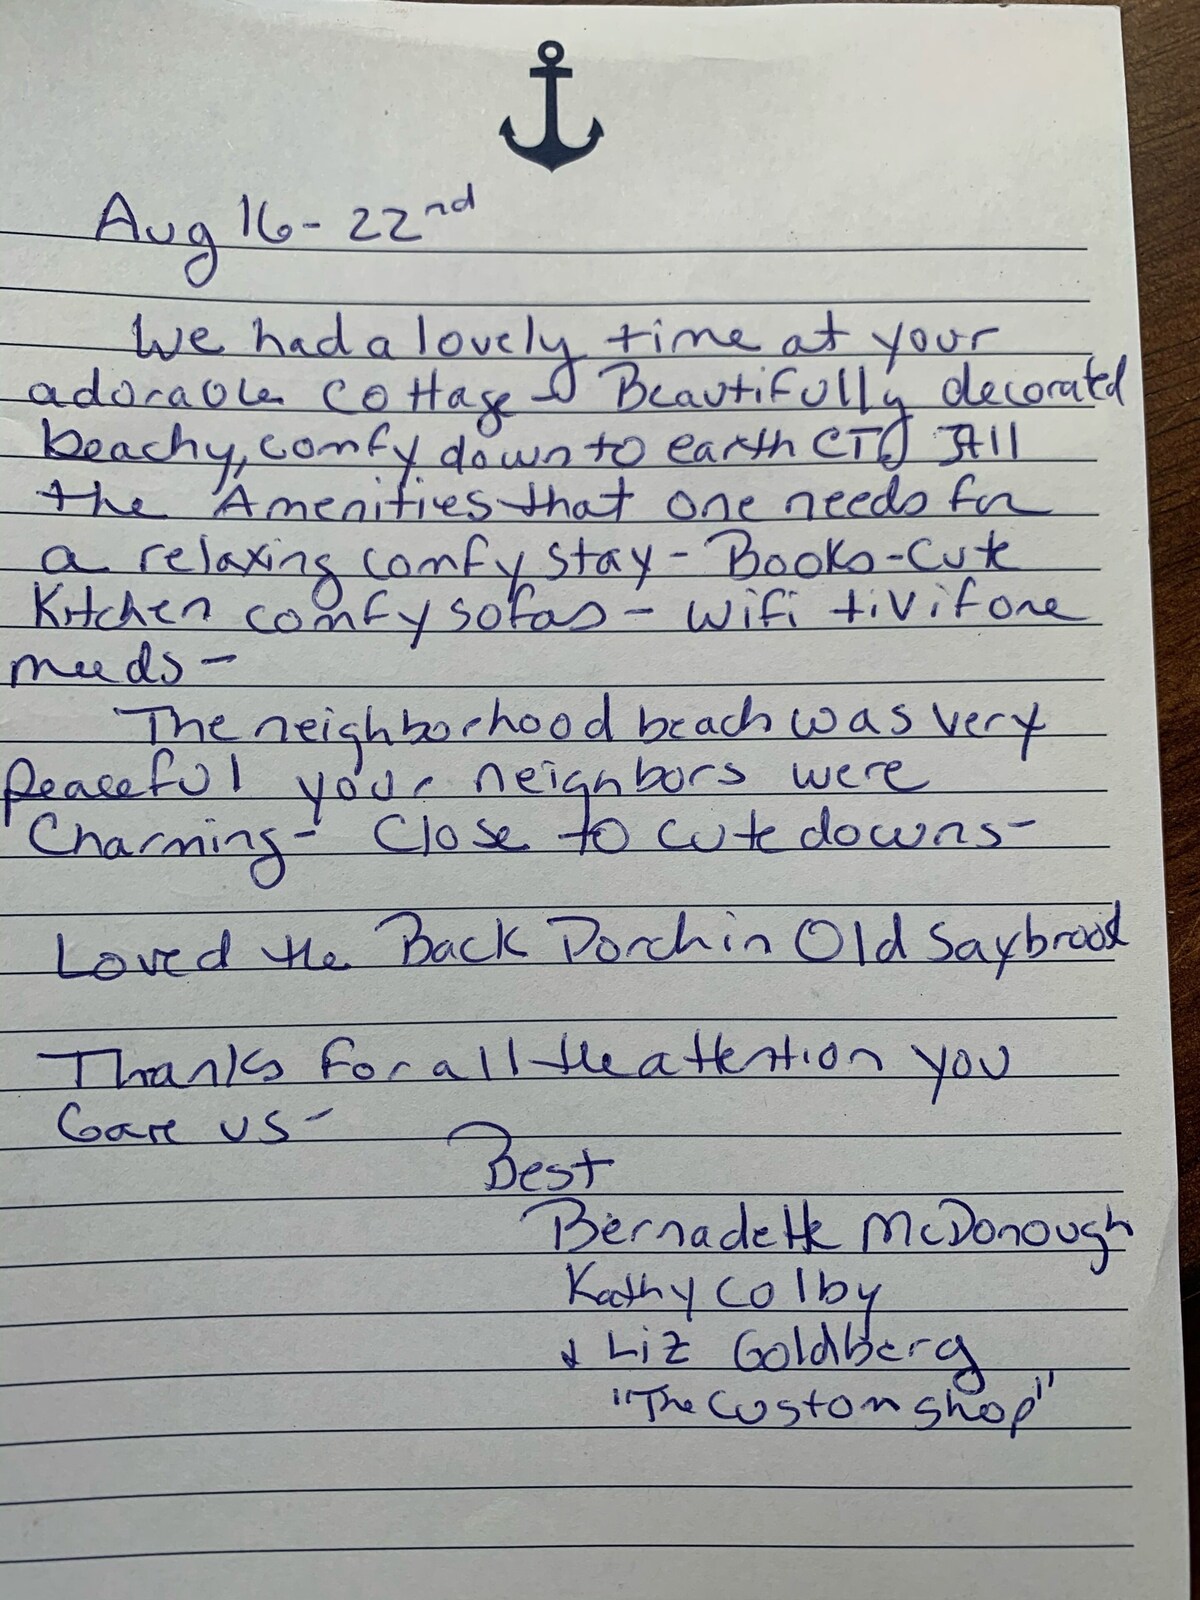 Aug 16 - 22nd
We had a lovely time at your
adorable cottage Beautifully decorated
beachy, comfy down to earth CT All
the Amenities that one needs for
a relaxing comfy stay - Books - Cute
Kitchen comfy sofas - wifi tiv if one
needs -
The neighborhood beach was very
peaceful your neighbors were
Charming - Close to cute downs -
Loved the Back Porch in Old Saybrook
Thanks for all the attention you
Gave us -
Best
Bernadette McDonough
Kathy Colby
& Liz Goldberg
"The Custom shop"